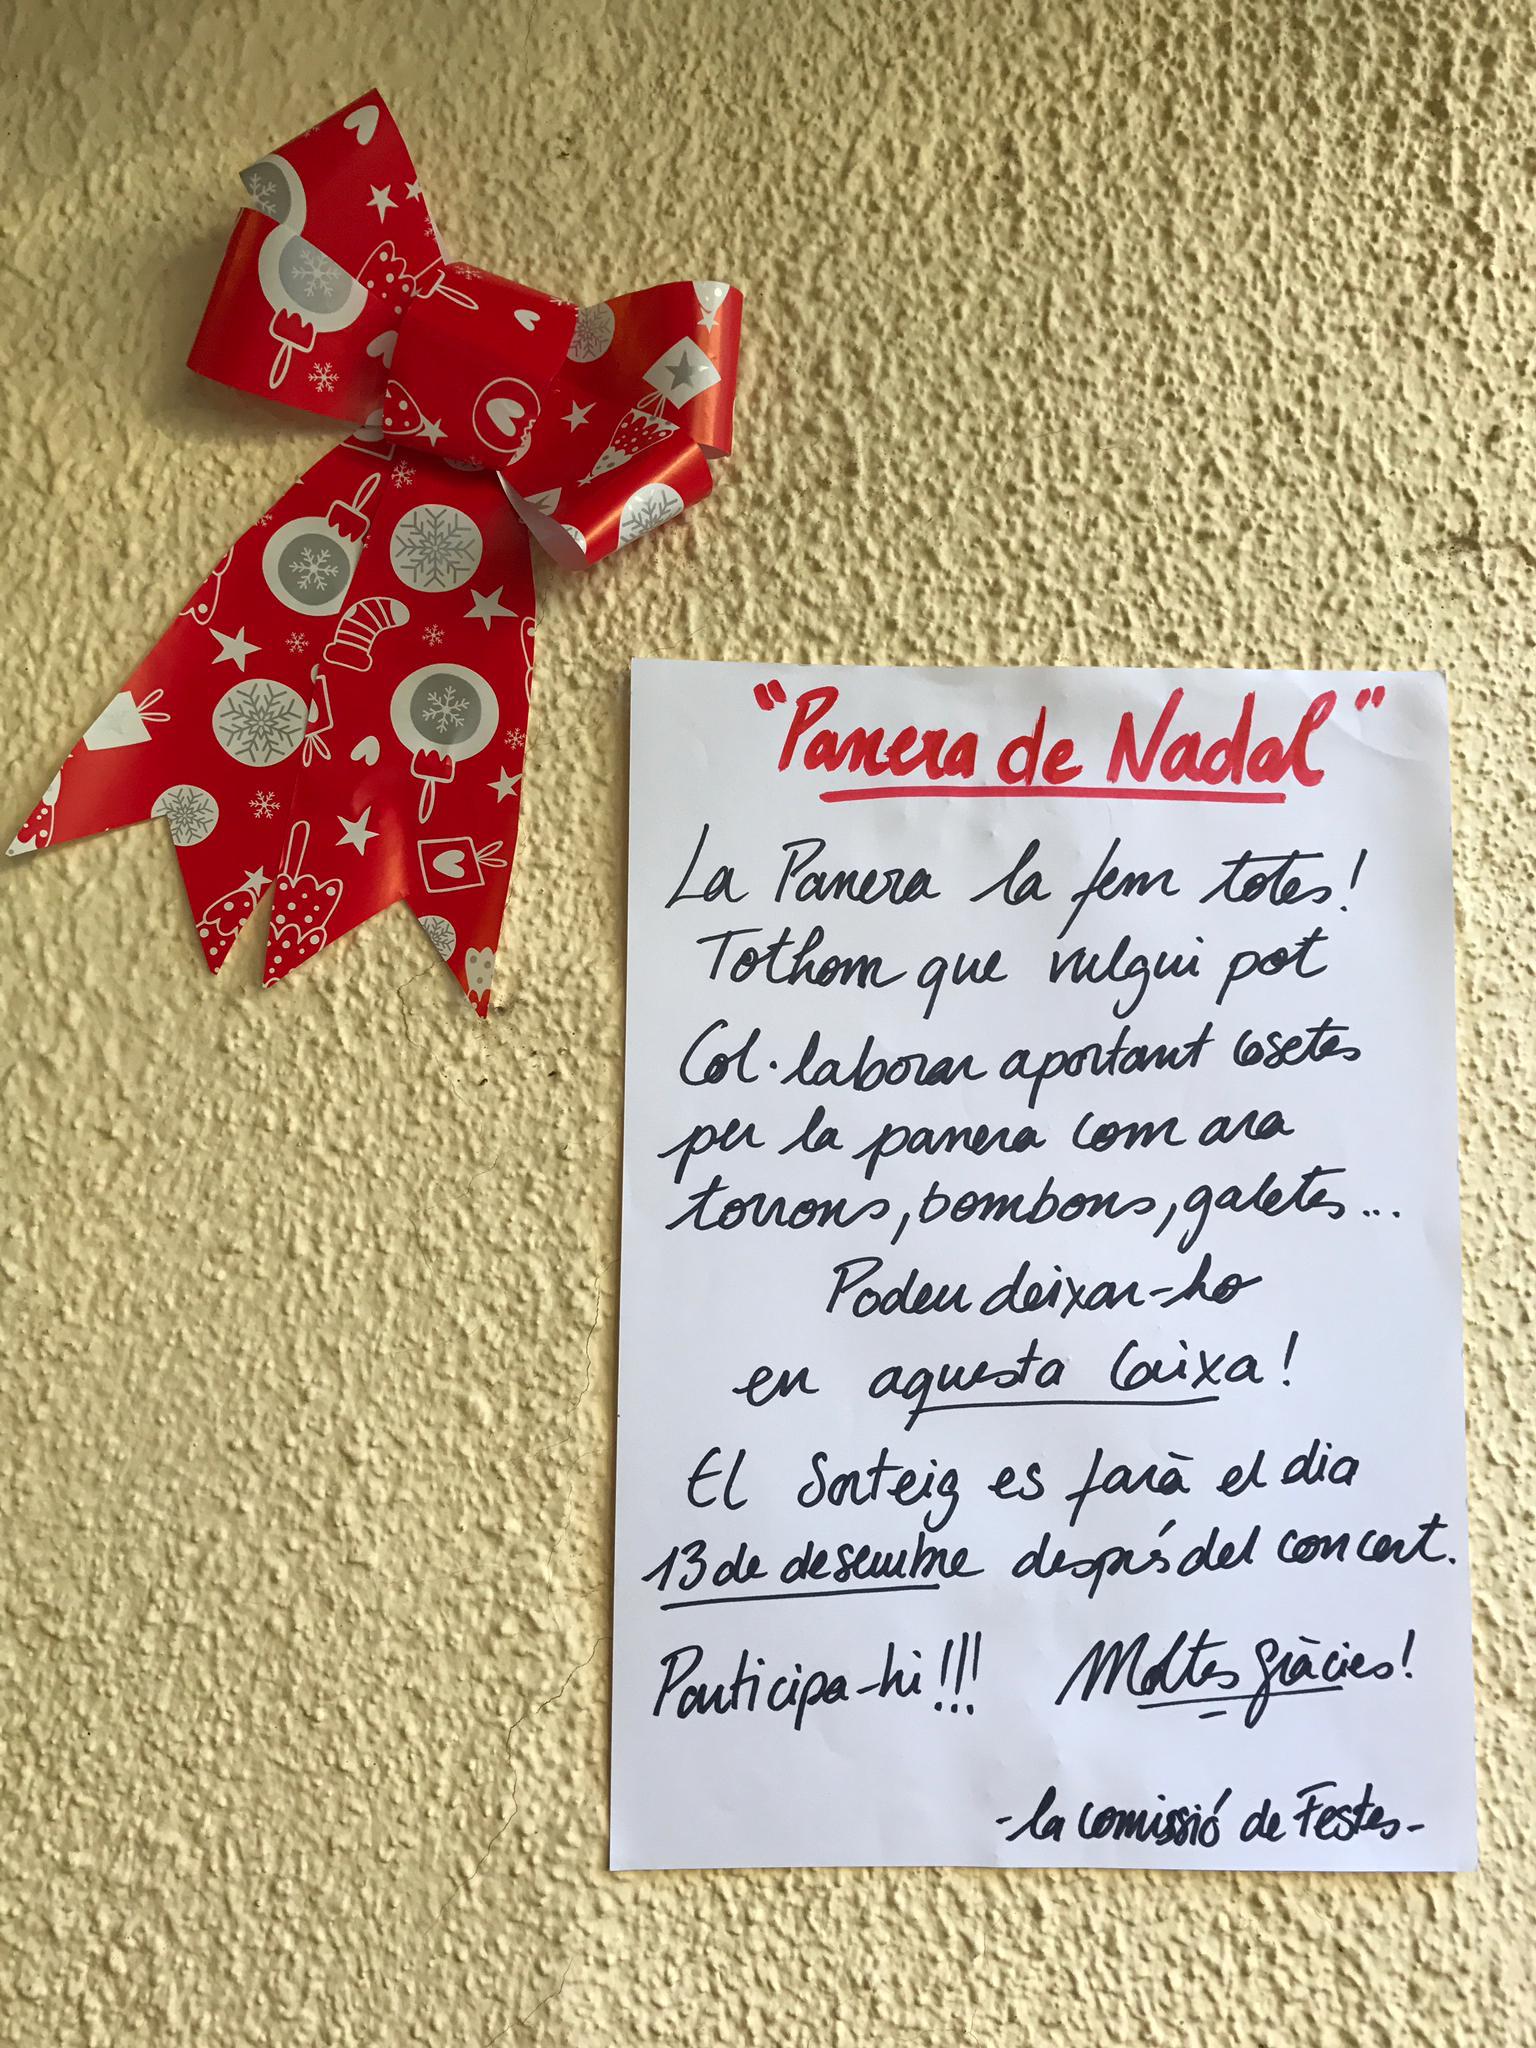 "Panera de Nadal"
La Panera la fem totes!
Tothom que vulgui pot
Col·laborar aportant cosetes
per la panera com ara
torrons, bombons, galetes...
Podeu deixar-ho
en aquesta Caixa!
El Sorteig es farà el dia
13 de desembre després del concert.
Participa-hi!!! Moltes gràcies!
-la comissió de Festes-